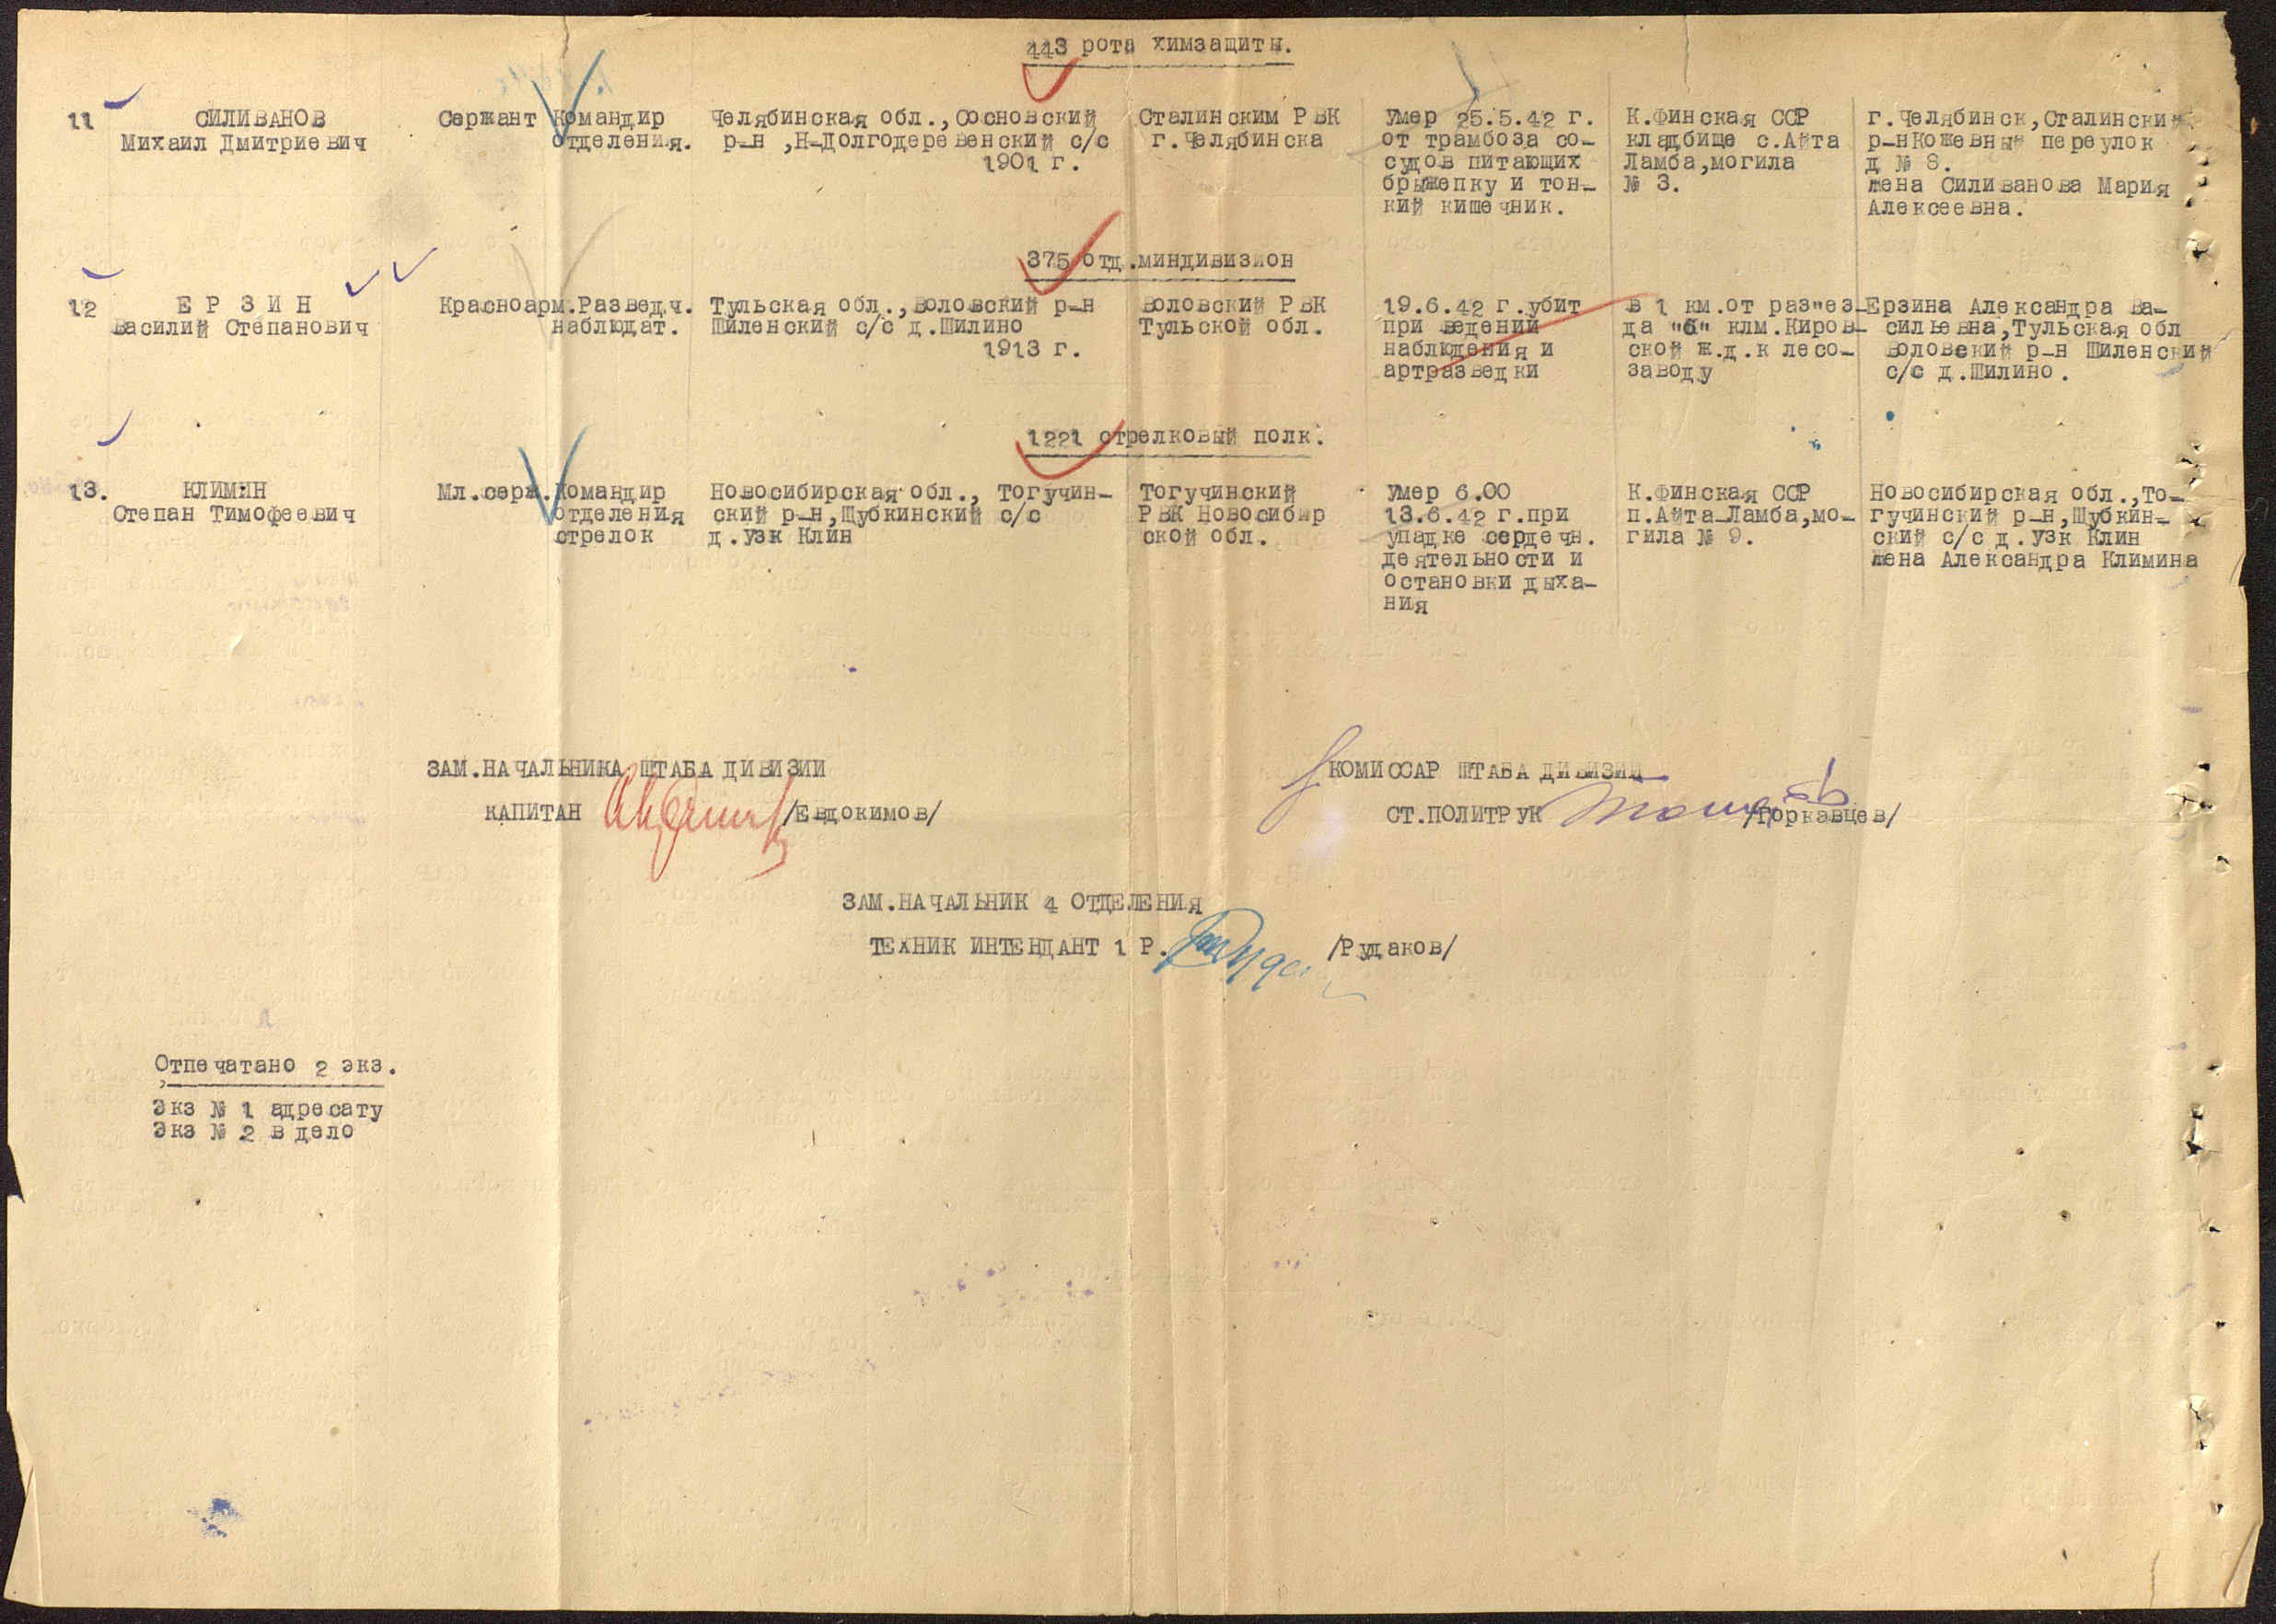 443 рота химзащиты.
11 СИЛИВАНОВ Сержант Командир Челябинская обл., Сосновский Сталинским РВК Умер 25.5.42 г. К.Финская ССР г.Челябинск,Сталинский
Михаил Дмитриевич отделения. р-н ,Н-Долгодеревенский с/с г.Челябинска от трамбоза со- кладбище с.Айта р-нКожевный переулок
1901 г. судов питающих Ламба,могила д № 8.
брыжепку и тон- № 3. жена Силиванова Мария
кий кишечник. Алексеевна.
375 отд.миндивизион
12 Е Р З И Н Красноарм.Развед.ч. Тульская обл.,Воловский р-н Воловский РВК 19.6.42 г.убит В 1 км.от раз"ез- Ерзина Александра Ва-
Василий Степанович наблюдат. Шиленский с/с д.Шилино Тульской обл. при ведений да "6" клм.Киров- сильевна,Тульская обл
1913 г. наблюдения и ской ж.д.к лесо- Воловский р-н Шиленский
артразведки заводу с/с д.Шилино.
1221 стрелковый полк.
13. КЛИМИН Мл.серж. Командир Новосибирская обл., Тогучин- Тогучинский Умер 6.00 К.Финская ССР Новосибирская обл.,То-
Степан Тимофеевич отделения ский р-н,Щубкинский с/с РВК Новосибир 13.6.42 г.при п.Айта-Ламба,мо- гучинский р-н,Щубкин-
стрелок д.узк Клин ской обл. упадке сердечн. гила № 9. ский с/с д.узк Клин
деятельности и жена Александра Климина
остановки дыха-
ния
ЗАМ.НАЧАЛЬНИКА ШТАБА ДИВИЗИИ КОМИССАР ШТАБА ДИВИЗИИ
КАПИТАН /Евдокимов/ СТ.ПОЛИТРУК /Торкавцев/
ЗАМ.НАЧАЛЬНИК 4 ОТДЕЛЕНИЯ
ТЕХНИК ИНТЕНДАНТ 1 Р. /Рудаков/
Отпечатано 2 экз.
Экз № 1 адресату
Экз № 2 в дело